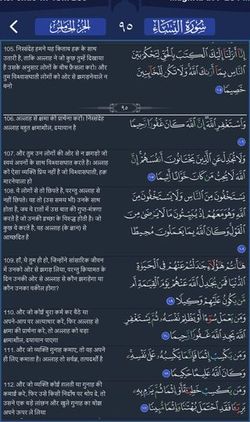 سُورَةُ النِّسَاءِ
٩٥
الجزء الخامس
105. निस्संदेह हमने यह किताब हक़ के साथ
उतारी है, ताकि अल्लाह ने जो कुछ तुम्हें दिखाया
है उसके अनुसार लोगों के बीच फ़ैसला करो। और
तुम विश्वासघाती लोगों की ओर से झगड़नेवाले न
बनो
إِنَّا أَنزَلْنَا إِلَيْكَ الْكِتَابَ بِالْحَقِّ لِتَحْكُمَ بَيْنَ
النَّاسِ بِمَا أَرَاكَ اللَّهُ وَلَا تَكُن لِّلْخَائِنِينَ
خَصِيمًا
٩٥
106. अल्लाह से क्षमा की प्रार्थना करो। निस्संदेह
अल्लाह बहुत क्षमाशील, दयावान है
وَاسْتَغْفِرِ اللَّهَ إِنَّ اللَّهَ كَانَ غَفُورًا رَّحِيمًا
107. और तुम उन लोगों की ओर से न झगड़ो जो
स्वयं अपनों के साथ विश्वासघात करते हैं। अल्लाह
को ऐसा व्यक्ति प्रिय नहीं है जो विश्वासघाती, हक़
मारनेवाला हो
وَلَا تُجَادِلْ عَنِ الَّذِينَ يَخْتَانُونَ أَنفُسَهُمْ إِنَّ
اللَّهَ لَا يُحِبُّ مَن كَانَ خَوَّانًا أَثِيمًا
108. वे लोगों से तो छिपते है, परन्तु अल्लाह से
नहीं छिपते। वह तो (उस समय भी) उनके साथ
होता है, जब वे रातों में उस बात की गुप्त-मंत्रणा
करते है जो उनकी इच्छा के विरुद्ध होती है। जो
कुछ वे करते है, वह अल्लाह (के ज्ञान) से
आच्छादित है
يَسْتَخْفُونَ مِنَ النَّاسِ وَلَا يَسْتَخْفُونَ مِنَ
اللَّهِ وَهُوَ مَعَهُمْ إِذْ يُبَيِّتُونَ مَا لَا يَرْضَىٰ مِنَ
الْقَوْلِ وَكَانَ اللَّهُ بِمَا يَعْمَلُونَ مُحِيطًا
109. हाँ, ये तुम ही हो, जिन्होंने सांसारिक जीवन
में उनकी ओर से झगड़ लिया, परन्तु क़ियामत के
दिन उनकी ओर से अल्लाह से कौन झगड़ेगा या
कौन उनका वकील होगा?
هَا أَنتُمْ هَٰؤُلَاءِ جَادَلْتُمْ عَنْهُمْ فِي الْحَيَاةِ
الدُّنْيَا فَمَن يُجَادِلُ اللَّهَ عَنْهُمْ يَوْمَ الْقِيَامَةِ أَم
مَّن يَكُونُ عَلَيْهِمْ وَكِيلًا
110. और जो कोई बुरा कर्म कर बैठे या
अपने-आप पर अत्याचार करे, फिर अल्लाह से
क्षमा की प्रार्थना करे, तो अल्लाह को बड़ा
क्षमाशील, दयावान पाएगा
وَمَن يَعْمَلْ سُوءًا أَوْ يَظْلِمْ نَفْسَهُ ثُمَّ يَسْتَغْفِرِ
اللَّهَ يَجِدِ اللَّهَ غَفُورًا رَّحِيمًا
111. और जो व्यक्ति गुनाह कमाए, तो वह अपने
ही लिए कमाता है। अल्लाह तो सर्वज्ञ, तत्वदर्शी है
وَمَن يَكْسِبْ إِثْمًا فَإِنَّمَا يَكْسِبُهُ عَلَىٰ نَفْسِهِ
وَكَانَ اللَّهُ عَلِيمًا حَكِيمًا
112. और जो व्यक्ति कोई ग़लती या गुनाह की
कमाई करे, फिर उसे किसी निर्दोष पर थोप दे, तो
उसने एक बड़े लांछन और खुले गुनाह का बोझ
अपने ऊपर ले लिया
وَمَن يَكْسِبْ خَطِيئَةً أَوْ إِثْمًا ثُمَّ يَرْمِ بِهِ
بَرِيئًا فَقَدِ احْتَمَلَ بُهْتَانًا وَإِثْمًا مُّبِينًا